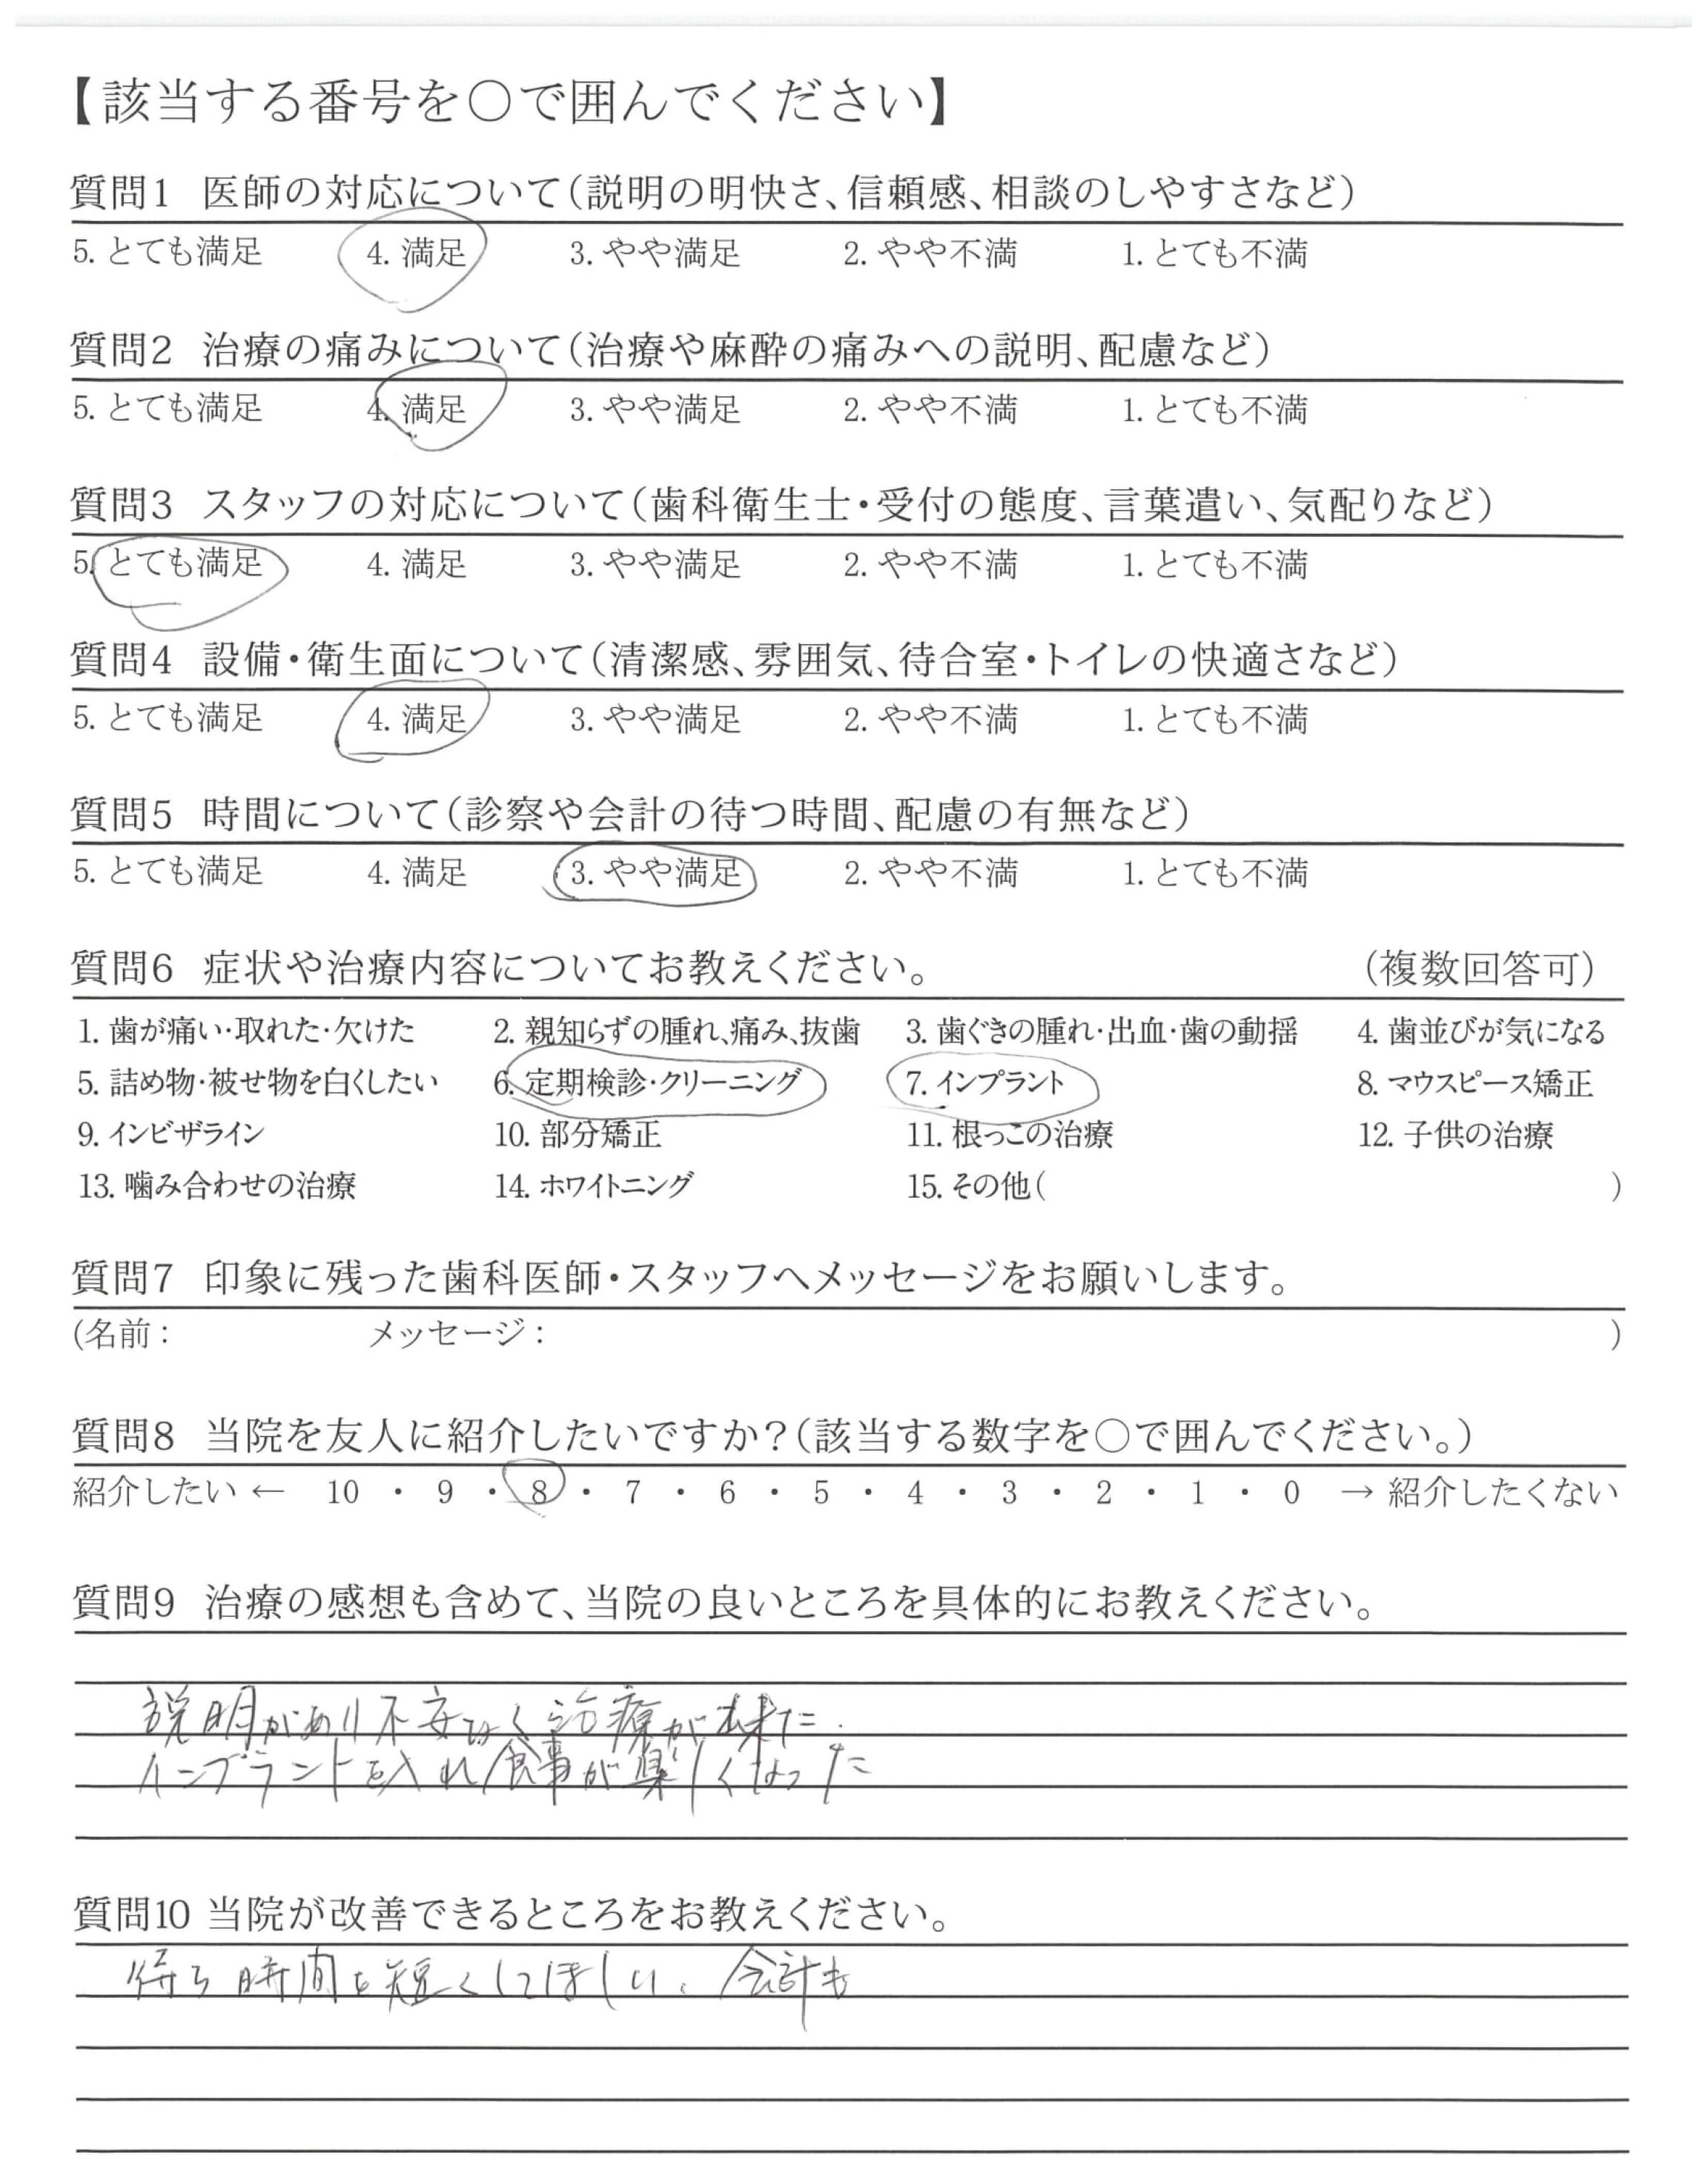 【該当する番号を○で囲んでください】
質問1 医師の対応について（説明の明快さ、信頼感、相談のしやすさなど）
5. とても満足 4. 満足 3. やや満足 2. やや不満 1. とても不満
質問2 治療の痛みについて（治療や麻酔の痛みへの説明、配慮など）
5. とても満足 4. 満足 3. やや満足 2. やや不満 1. とても不満
質問3 スタッフの対応について（歯科衛生士・受付の態度、言葉遣い、気配りなど）
5. とても満足 4. 満足 3. やや満足 2. やや不満 1. とても不満
質問4 設備・衛生面について（清潔感、雰囲気、待合室・トイレの快適さなど）
5. とても満足 4. 満足 3. やや満足 2. やや不満 1. とても不満
質問5 時間について（診察や会計の待つ時間、配慮の有無など）
5. とても満足 4. 満足 3. やや満足 2. やや不満 1. とても不満
質問6 症状や治療内容についてお教えください。 （複数回答可）
1. 歯が痛い・取れた・欠けた 2. 親知らずの腫れ、痛み、抜歯 3. 歯ぐきの腫れ・出血・歯の動揺 4. 歯並びが気になる
5. 詰め物・被せ物を白くしたい 6. 定期検診・クリーニング 7. インプラント 8. マウスピース矯正
9. インビザライン 10. 部分矯正 11. 根っこの治療 12. 子供の治療
13. 噛み合わせの治療 14. ホワイトニング 15. その他（ ）
質問7 印象に残った歯科医師・スタッフへメッセージをお願いします。
（名前： メッセージ： ）
質問8 当院を友人に紹介したいですか？（該当する数字を○で囲んでください。）
紹介したい ← 10 ・ 9 ・ 8 ・ 7 ・ 6 ・ 5 ・ 4 ・ 3 ・ 2 ・ 1 ・ 0 → 紹介したくない
質問9 治療の感想も含めて、当院の良いところを具体的にお教えください。
説明があり不安なく治療が出来た.
インプラントを入れ食事が楽しくなった
質問10 当院が改善できるところをお教えください。
待ち時間を短くしてほしい、会計も